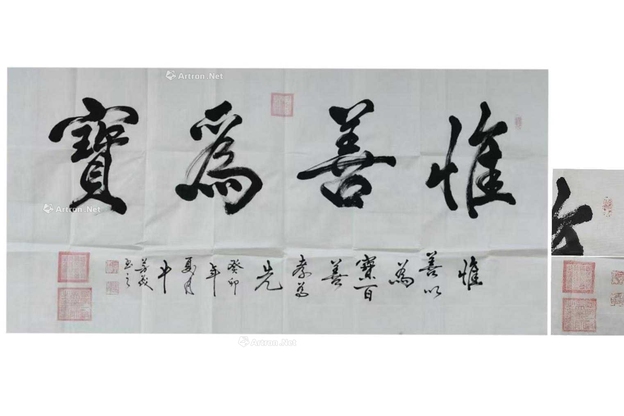 惟善為寶
惟善以為寶百善孝為先癸卯年夏月
Artron.Net
Artron.Net
Artron.Net